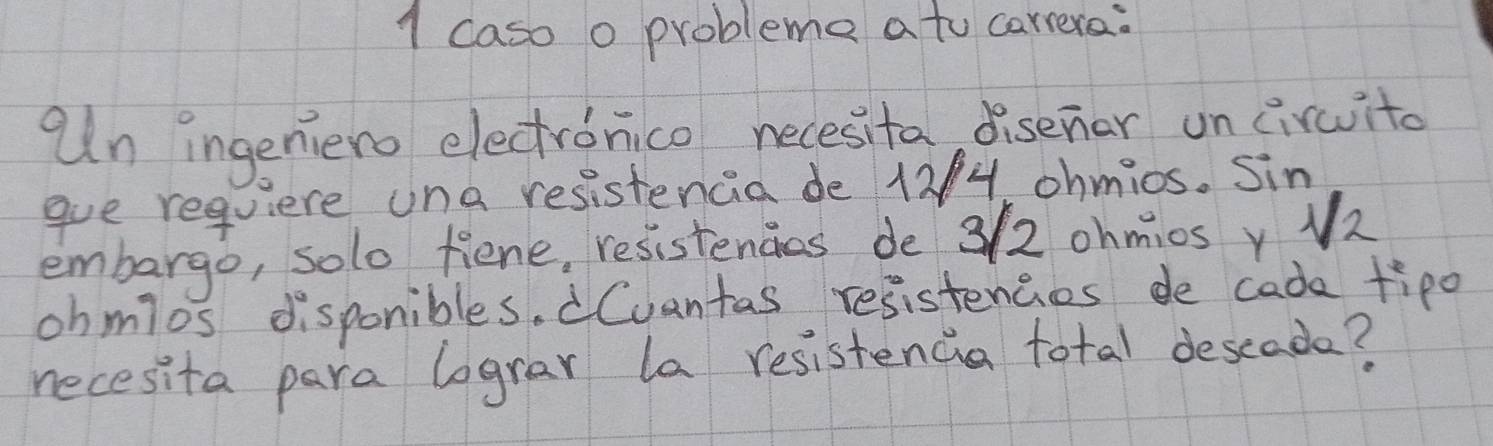 1 caso o problema a tu carrera:
Un ingeniero electrónico necesita diseñar un circuito
que requiere una resistencia de 12/4 ohmios. Sin
embargo, solo tiene. resistencias de 3/2 ohmios y 1/2
ohmios disponibles. ¿Cuantas resistencias de cada tipo
necesita para lograr la resistencia total deseada?